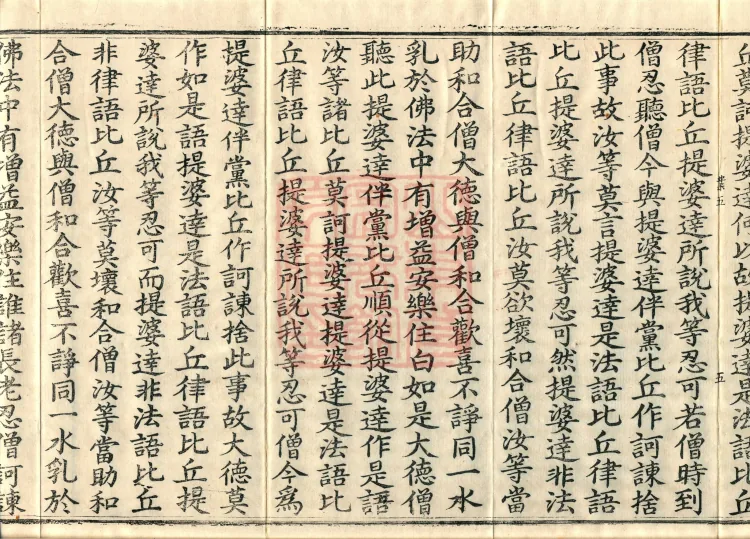 丘莫訶提婆達何以故提婆達是法語比丘
律語比丘提婆達所說我等忍可若僧時到
僧忍聽僧今與提婆達伴黨比丘作訶諫捨
此事故汝等莫言提婆達是法語比丘律語
比丘提婆達所說我等忍可然提婆達非法
語比丘律語比丘汝莫欲壞和合僧汝等當
助和合僧大德與僧和合歡喜不諍同一水
乳於佛法中有增益安樂住白如是大德僧
聽此提婆達伴黨比丘順從提婆達作是語
汝等諸比丘莫訶提婆達提婆達是法語比
丘律語比丘提婆達所說我等忍可僧今為
提婆達伴黨比丘作訶諫捨此事故大德莫
作如是語提婆達是法語比丘律語比丘提
婆達所說我等忍可而提婆達非法語比丘
非律語比丘汝等莫壞和合僧汝等當助和
合僧大德與僧和合歡喜不諍同一水乳於
佛法中有增益安樂住誰諸長老忍僧訶諫
五